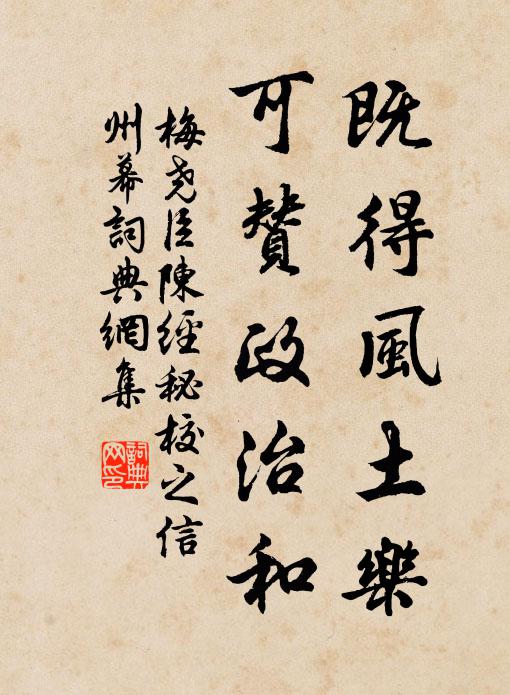 既得風土樂
可贊政治和
梅堯臣陳經秘校之信
州幕詞典網集
詞典
网印